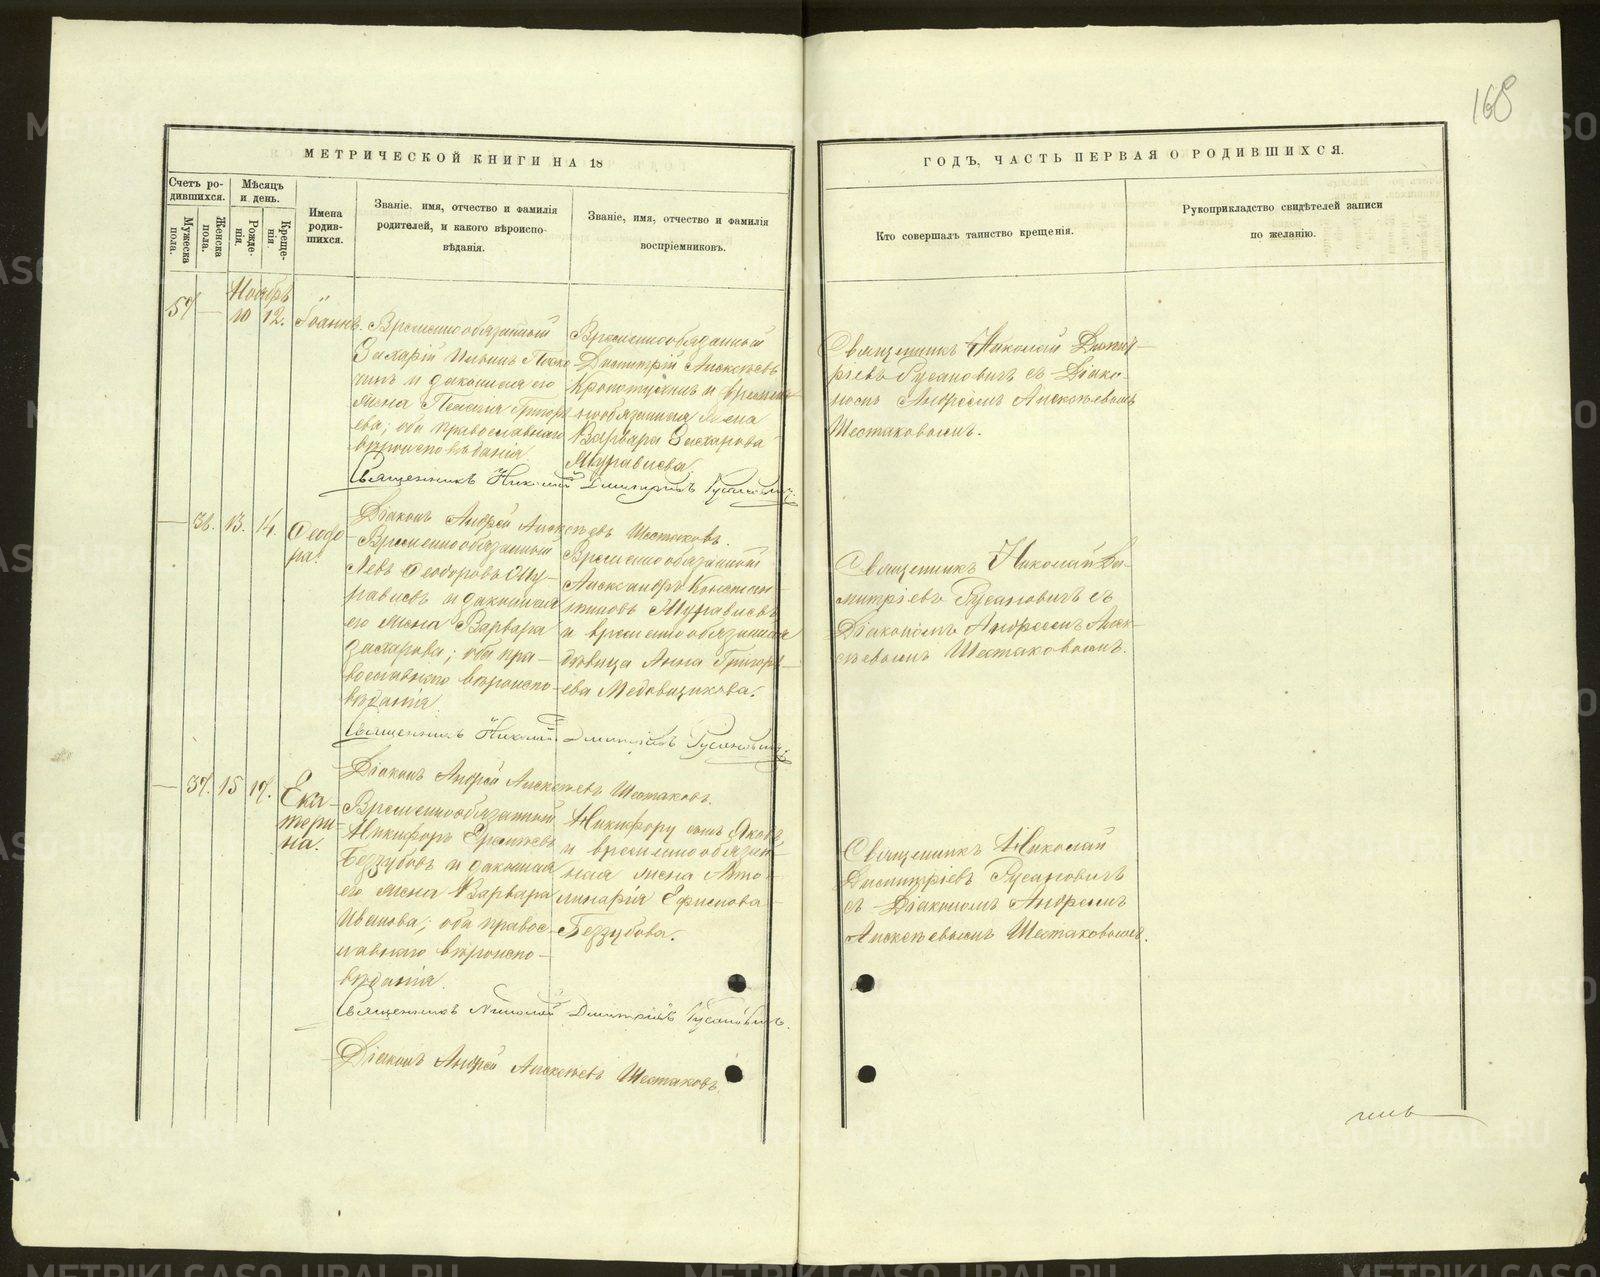 168
МЕТРИЧЕСКОЙ КНИГИ НА 18
ГОДЪ, ЧАСТЬ ПЕРВАЯ О РОДИВШИХСЯ.
Счетъ ро-
дившихся.
Мужеска
пола.
Женска
пола.
Мѣсяцъ
и день.
Рожде-
нія.
Креще-
нія.
Имена
родив-
шихся.
Званіе, имя, отчество и фамилія
родителей, и какого вѣроиспо-
вѣданія.
Званіе, имя, отчество и фамилія
воспріемниковъ.
Кто совершалъ таинство крещенія.
Рукоприкладство свидѣтелей записи
по желанію.
Ноябрь
57 — 10 12. Іоаннъ.
Временнообязанный
Захарій Ильинъ
и законная его
жена Григорь-
ева; оба православнаго
вѣроисповѣданія.
Временнообязанный
Димитрій Алексѣевъ
и времен-
нообязанная жена
Варвара Захарова
Муравьева.
Священникъ Николай Димит-
ріевъ Русановичъ съ Діако-
номъ Андреемъ Алексѣевымъ
Шестаковымъ.
Священникъ Николай Дмитріевъ Русановичъ.
Діаконъ Андрей Алексѣевъ Шестаковъ.
— 36. 13. 14. Ѳеодо-
ра.
Временнообязанный
Левъ Ѳеодоровъ Му-
равьевъ и законная
его жена Варвара
Захарова; оба пра-
вославнаго вѣроиспо-
вѣданія.
Временнообязанный
Александръ Констан-
тиновъ Муравьевъ
и временнообязанная
дѣвица Анна Григорь-
ева Медовщикова.
Священникъ Николай Ди-
митріевъ Русановичъ съ
Діакономъ Андреемъ Алек-
сѣевымъ Шестаковымъ.
Священникъ Николай Дмитріевъ Русановичъ.
Діаконъ Андрей Алексѣевъ Шестаковъ.
— 37. 15 17. Ека-
тери-
на.
Временнообязанный
Никифоръ
Беззубовъ и законная
его жена Варвара
Иванова; оба правос-
лавнаго вѣроиспо-
вѣданія.
Никифору сынъ Яковъ
и временнообязан-
ная жена Аппо-
линарія Ефимова
Беззубова.
Священникъ Николай
Димитріевъ Русановичъ
съ Діакономъ Андреемъ
Алексѣевымъ Шестаковымъ.
Священникъ Николай Дмитріевъ Русановичъ.
Діаконъ Андрей Алексѣевъ Шестаковъ.
METRIKI.GASO-URAL.RU